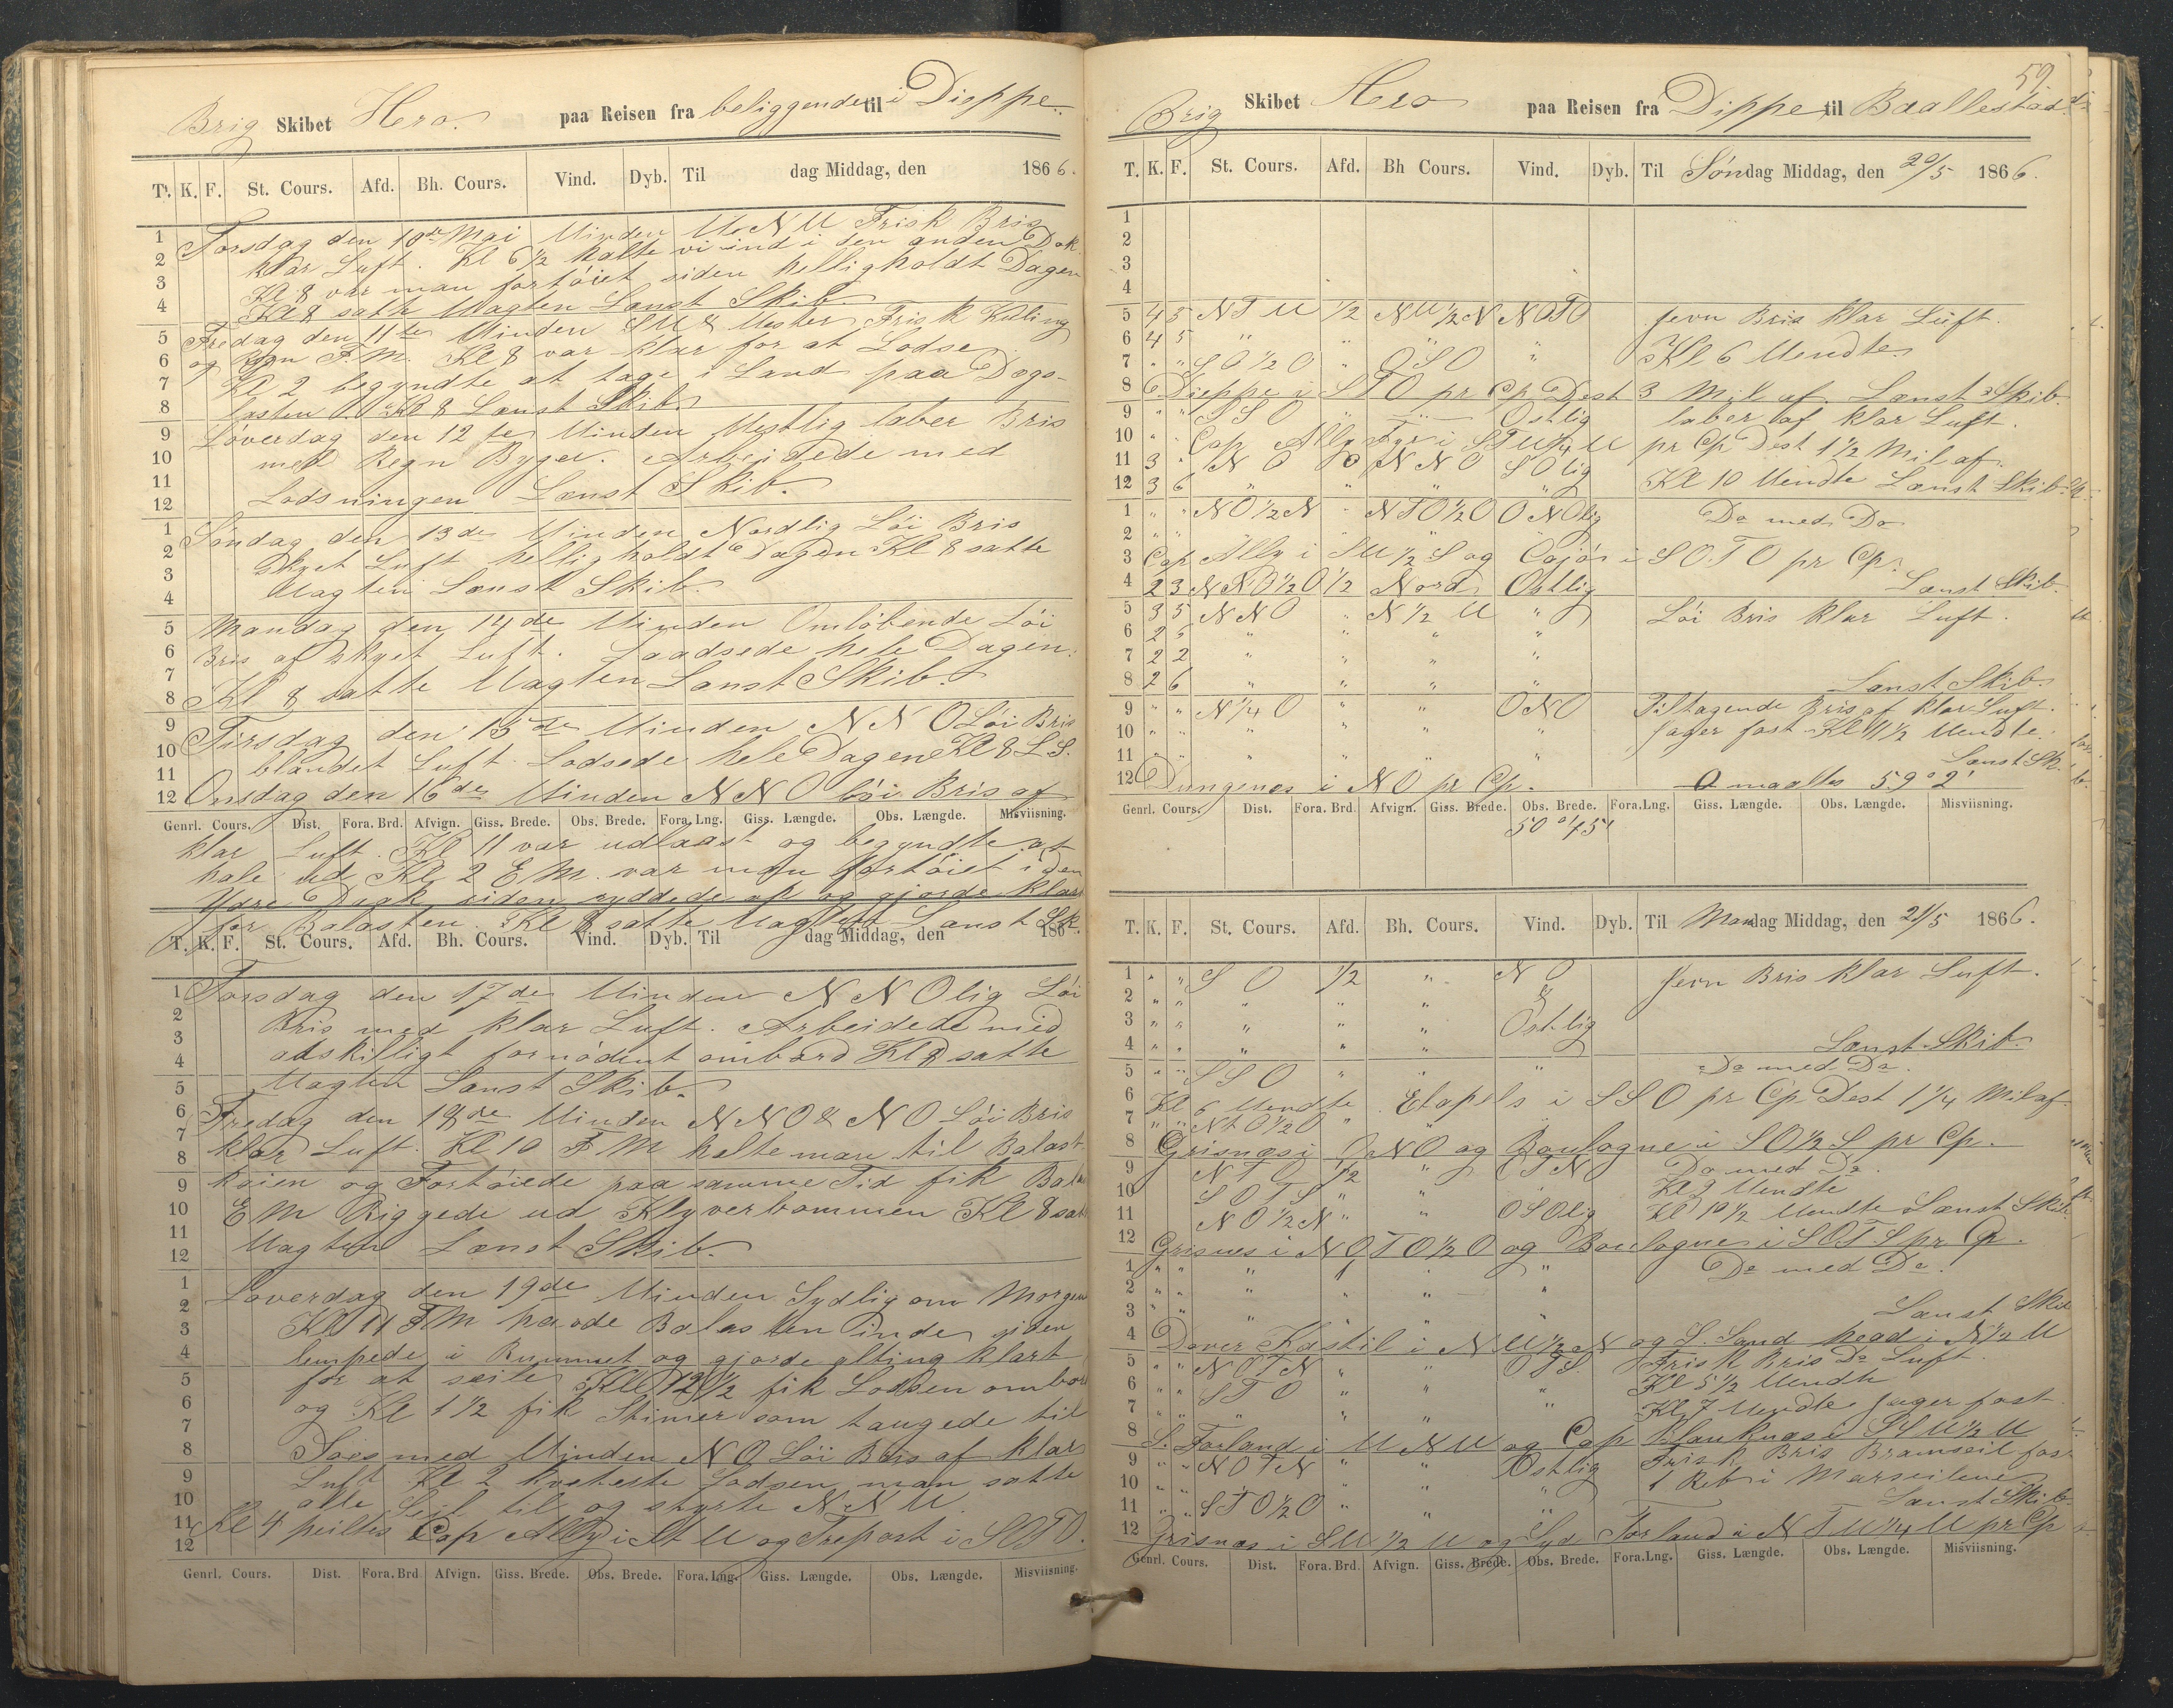 Brig Skibet Hero. paa Reisen fra beliggende til i Dieppe.
T. K. F. St. Cours. Afd. Bh. Cours. Vind. Dyb. Til dag Middag, den 1866.
Torsdag den 10de Mai Vinden V.N.V Frisk Bris
klar Luft. Kl 6 1/2 halte vi ind i den anden Dok
Kl 8 var man fortöiet siden helligholdt Dagen
Kl 8 satte Vagten Lænst Skib.
Fredag den 11te Vinden SV & Vester Frisk Kuling
og Regn F.M. Kl 8 var klar for at Lodse
Kl 2 begyndte at tage i Land paa
lasten Kl 8 Lænst Skib.
Löverdag den 12te Vinden Vestlig laber Bris
med Regn Byger. Arbeidede med
Lodsningen Lænst Skib.
Söndag den 13de Vinden Nordlig Löi Bris
skyet Luft helligholdt Dagen Kl 8 satte
Vagten Lænst Skib.
Mandag den 14de Vinden Omlöbende Löi
Bris af skyet Luft. Laadsede hele Dagen.
Kl 8 satte Vagten Lænst Skib.
Tirsdag den 15de Vinden NNO Löi Bris
blandet Luft. Lodsede hele Dagen Kl 8 L.S.
Onsdag den 16de Vinden NNO löi Bris af
Genrl. Cours. Dist. Fora. Brd. Afvign. Giss. Brede. Obs. Brede. Fora. Lng. Giss. Længde. Obs. Længde. Misviisning.
klar Luft. Kl 11 var udlaast og begyndte at
hale ud Kl 2 E.M. var man fortöiet i den
Ydre Dok siden ryddede op og gjorde klar
for Balasten. Kl 8 satte Vagten Lænst Sk.
T. K. F. St. Cours. Afd. Bh. Cours. Vind. Dyb. Til dag Middag, den 186
Torsdag den 17de Vinden NNOlig Löi
Bris med klar Luft. Arbeidede med
adskilligt fornödent ombord Kl 8 satte
Vagten Lænst Skib.
Fredag den 18de Vinden NNO & NO Löi Bris
klar Luft. Kl 10 FM halte man til Balast
Kaien og Fortöiede paa samme Tid fik
EM Riggede ud Klyverbommen Kl 8 sat
Vagten Lænst Skib.
Löverdag den 19de Vinden Sydlig om Morgen
Kl 11 FM havde Balasten inde, siden
lempede i Rummet og gjorde alting klart
for at seile Kl 12 1/2 fik Lodsen ombor
og Kl 1 1/2 fik Stimer som taugede til
Soes med Vinden NO Löi Bris af klar
Luft Kl 2 Lodsen man satte
alle Seil til og styrte NNV.
Kl 4 peiltes Cap Ally i St V og Treport i SOTO.
Genrl. Cours. Dist. Fora. Brd Afvign. Giss. Brede. Obs. Brede. Fora. Lng. Giss. Længde. Obs. Længde. Misviisning.
59
Brig Skibet Hero paa Reisen fra Dippe til Baallestad
T. K. F. St. Cours. Afd. Bh Cours. Vind. Dyb. Til Söndag Middag, den 20/5 1866.
1
2
3
4
5 4 5 NTV 1/2 NV 1/2 N NOTO Jevn Bris klar Luft.
6 4 5 " " " "
7 " " SO 1/2 O " OSO " Kl 6 Vendte
8 Dieppe i STO pr Cp Dest 3 Mil af. Lænst Skib.
9 " " SSO " Ostlig laber af klar Luft.
10 " " Cap Ally Fyr i STV 1/4 V pr Cp Dest 1 1/2 Mil af.
11 3 NO NNO SOlig
12 3 6 " " " " Kl 10 Vendte Lænst Skib.
1 " " NO 1/2 N " NTO 1/2 O ONOlig Do med Do
2 " "
3 Cap Ally i SV 1/2 S og i SOTO pr Cp.
4 2 3 NNO 1/2 O 1/2 Nord Ostlig Lænst Skib.
5 3 5 NNO " N 1/2 V " Löi Bris klar Luft.
6 2 5 " " " "
7 2 2 " " " "
8 2 6 " " " " Lænst Skib.
9 " " N 1/4 O " " ONO Tiltagende Bris af klar Luft.
10 " " " " " " Jager fast Kl 11 1/2 Vendte.
11 " " " " " Lænst Sk.
12 Dungenes i NO pr Cp. maaltes 59° 2'
Genrl. Cours. Dist. Fora. Brd. Afvign. Giss. Brede. Obs. Brede. Fora. Lng. Giss. Længde. Obs. Længde. Misviisning.
50° 45'
T. K. F. St. Cours. Afd. Bh. Cours. Vind. Dyb. Til Mandag Middag, den 21/5 1866.
1 " " SO 1/2 " NO Jevn Bris klar Luft.
2 " " " " " &
3 " " " " " Ostlig
4 " " " " " Lænst Skib.
5 " " SSO " " " Do med Do.
6 Kl 6 Vendte. Etapels i SSO pr Cp Dest 1 1/4 Mil af
7 " " NtO 1/2 O " "
8 Grisnæs i ONO og Boulogne i SO 1/2 S pr Cp.
9 NTO 1/2 " OTNO Do med Do.
10 SOTS " " Kl 9 Vendte
11 NO 1/2 N " " OSOlig Kl 10 1/2 Vendte Lænst Skib.
12 Grisnes i NOTO 1/2 O og Boulogne i SOTS pr Cp.
1 " " " " " " Do med Do.
2 " " " " " "
3 " " " " " " Lænst Skib
4 Dover Kastil i NV 1/2 N og S. Sand head i N 1/2 V
5 " " NOTN " " OTS. Frisk Bris Do Luft.
6 " " STO " " " Kl 5 1/2 Vendte
7 " " " " " " Kl 7 Vendte Jager fast
8 S. Forland i VNV og Cap Blanknæs i SV 1/2 V
9 " " NOTN " " Ostlig Frisk Bris Bramseil fas
10 " " " " " " 1 Reb i Marseilene
11 " " STO 1/2 O " " " Lænst Skib
12 Grisnæs i SV 1/2 V og Syd Forland i NTV 1/4 V pr Cp
Genrl. Cours. Dist. Fora. Brd. Afvign. Giss. Brede. Obs. Brede. Fora. Lng. Giss. Længde. Obs. Længde. Misviisning.